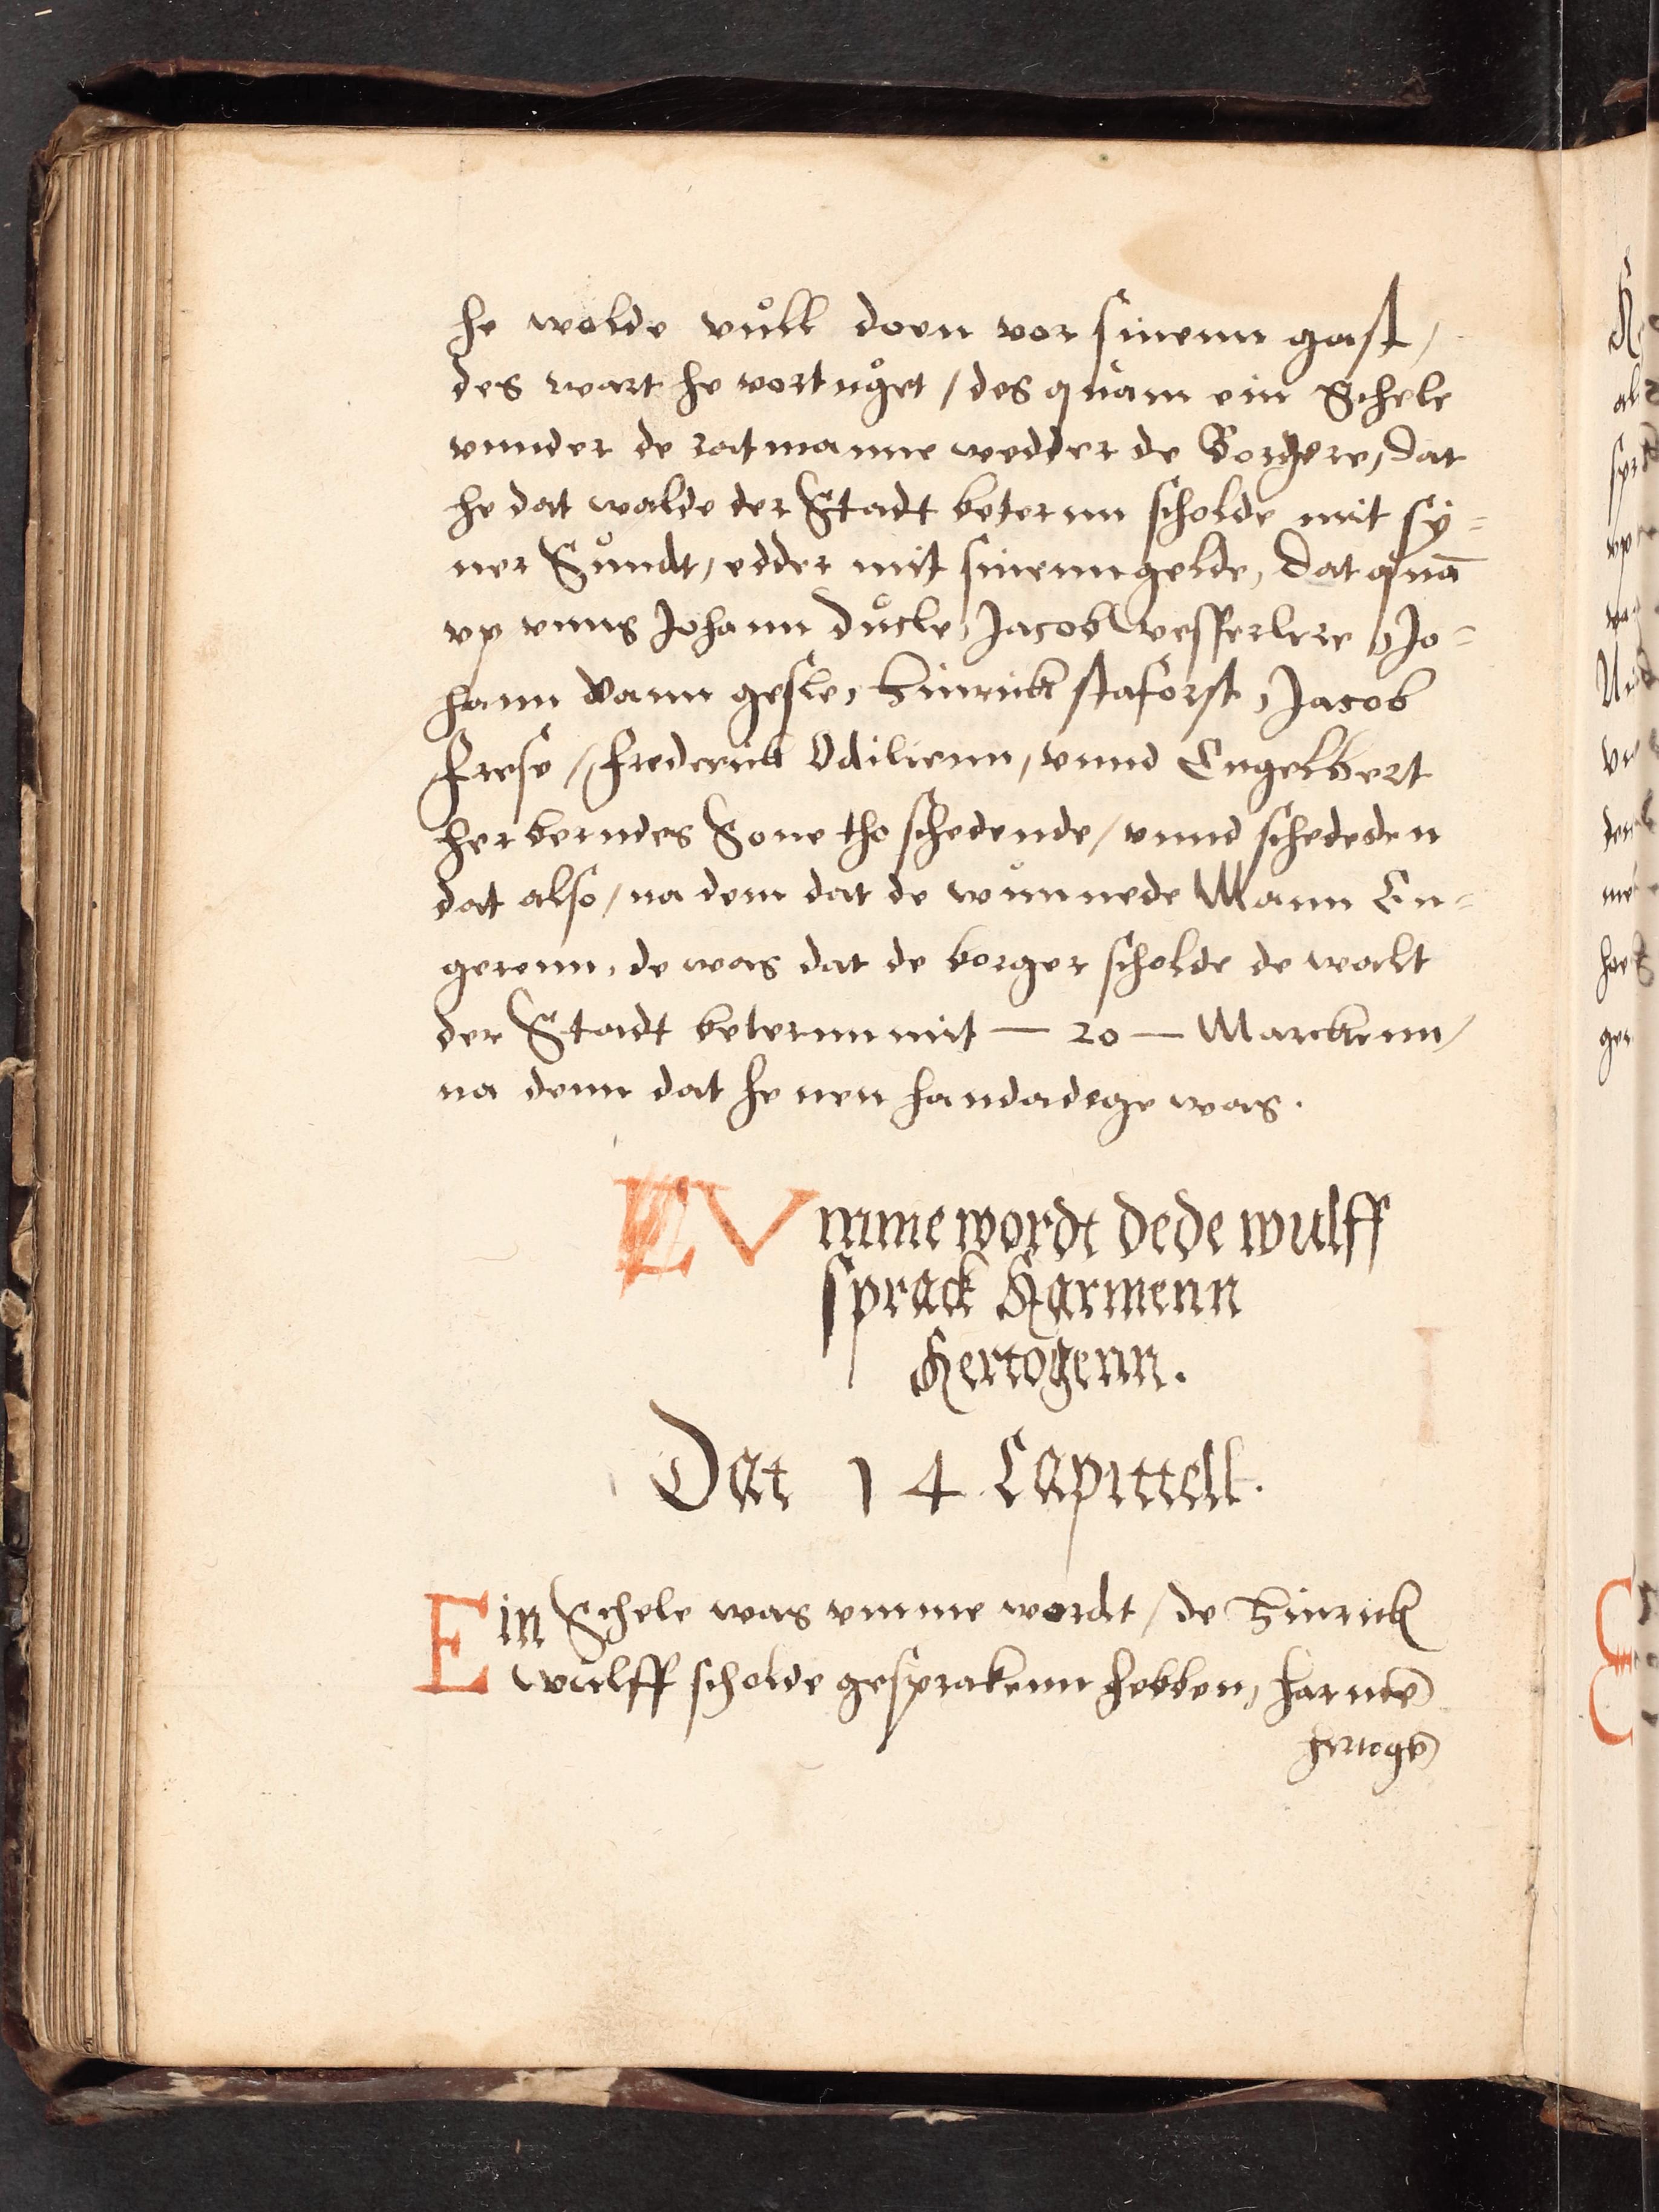 he wolde vůll doen vor sinenn gast /
des wart he vortůget / des quam ein Schele
vnnder de ratmanne wedder de Borgere, dat
he dat walde der Stadt beternn scholde mit sy=
ner Sůndt, edder mit sinenn gelde, dat quā
vp vnns Johann důcle, Jacob vefferlere, Jo=
hann vann gesle, Hinrick staforst, Jacob
Frese / Frederick Odilienn, vnnd Engelbert
her berndes Sone tho schedende / vnnd schededen
dat also / na dem dat de wůnnede Mann En=
gerenn, de was dat de borger scholde de walt
der Stadt beternn mit — 20 — Marckenn /
na denn dat he nen handadege was.
V mme wordt dede wulff
sprack Harmenn
Hertogenn.
Dat 14 Capittell.
Ein Schele was vmme wordt / de Hinrick
wulff scholde gesprakenn hebben, harmē
hertogē